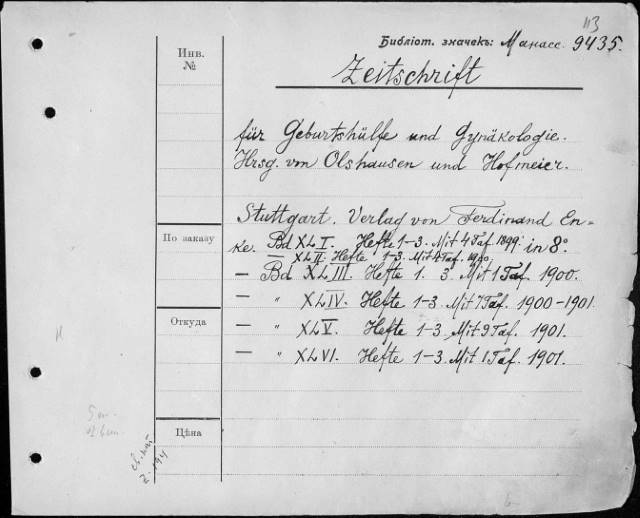 113
Библіот. значекъ: Манасс. 9435.
Инв.
№
Zeitschrift
für Geburtshülfe und Gynäkologie.
Hrsg. von Olshausen und Hofmeier.
Stuttgart. Verlag von Ferdinand En-
ke. Bd XLI. Hefte 1-3. Mit 4 Taf. 1899. in 8°.
— XLII. Hefte 1-3. Mit 4 Taf. 1900.
По заказу
— Bd XLIII. Hefte 1. 3. Mit 1 Taf. 1900.
— " XLIV. Hefte 1-3. Mit 7 Taf. 1900-1901.
Откуда
— " XLV. Hefte 1-3. Mit 9 Taf. 1901.
— " XLVI. Hefte 1-3. Mit 1 Taf. 1901.
Цѣна